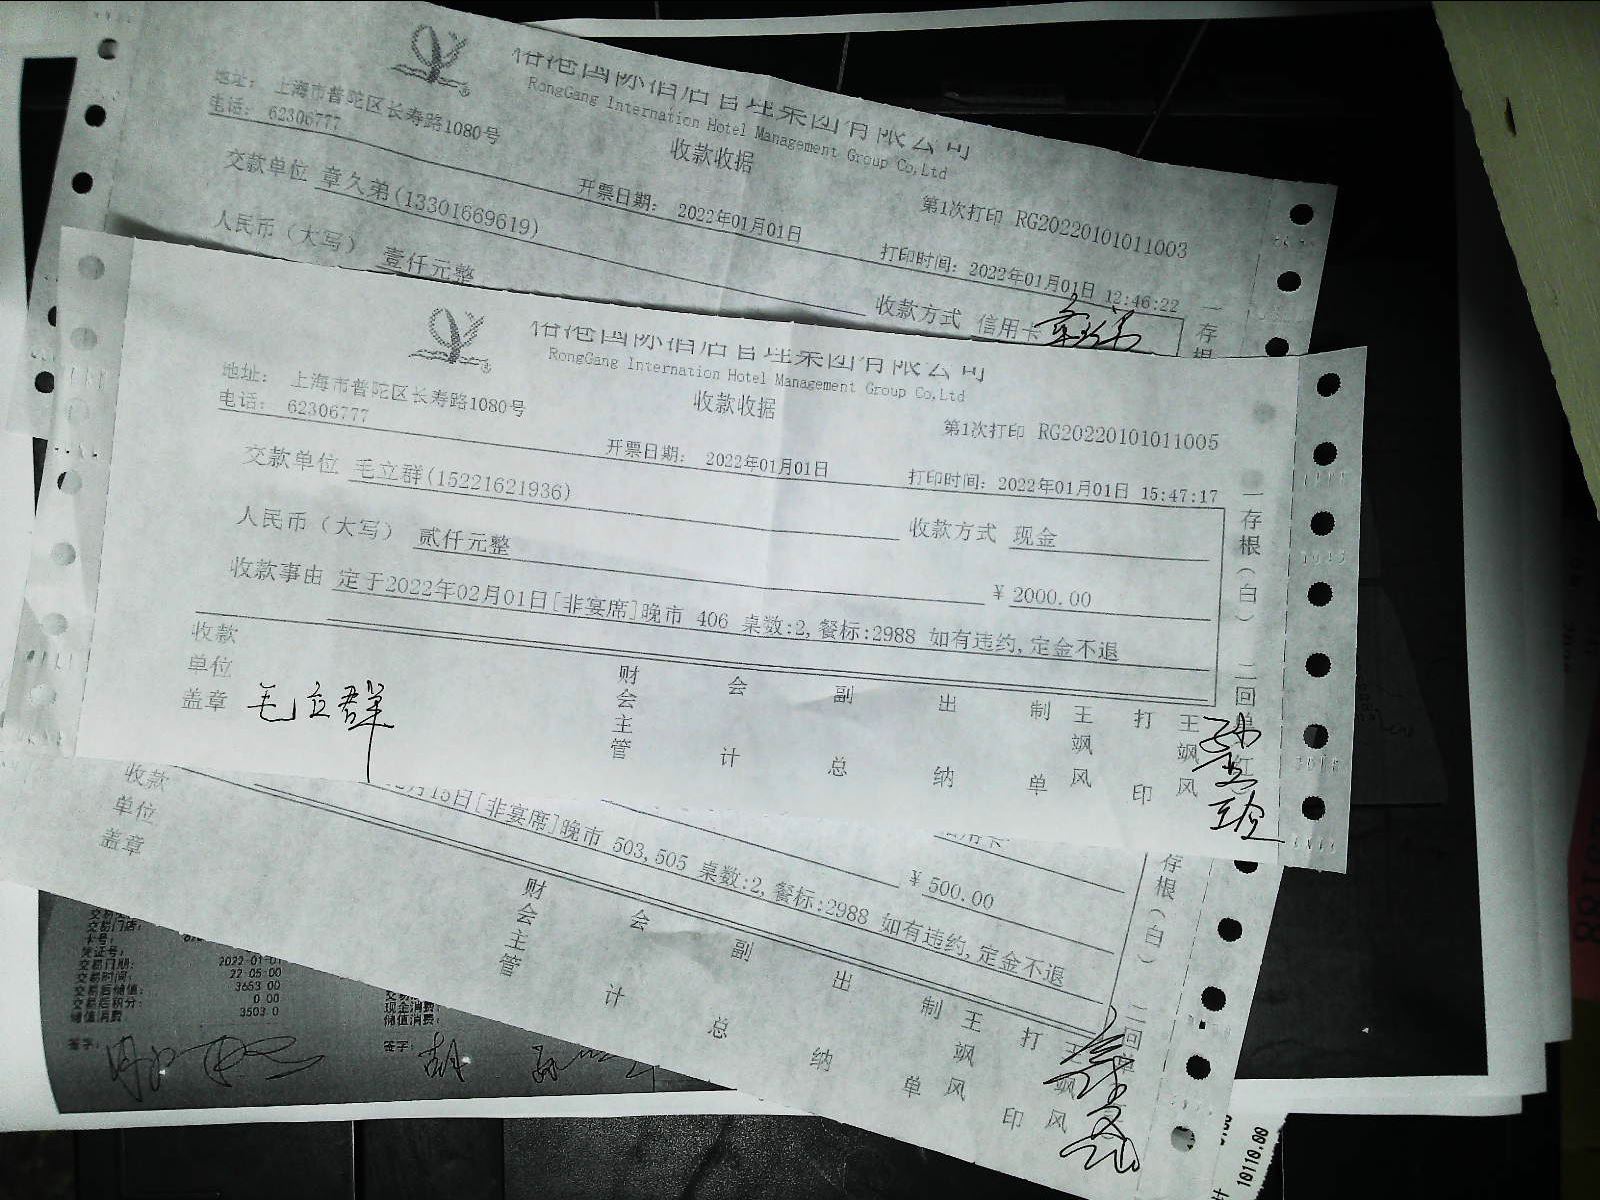 RongGang Internation Hotel Management Group Co,Ltd
地址: 上海市普陀区长寿路1080号
电话: 62306777
收款收据
第1次打印 RG20220101011003
开票日期: 2022年01月01日
打印时间: 2022年01月01日 12:46:22
交款单位 章久弟(13301669619)
收款方式 信用卡
人民币（大写） 壹仟元整
一存根
RongGang Internation Hotel Management Group Co,Ltd
地址: 上海市普陀区长寿路1080号
电话: 62306777
收款收据
第1次打印 RG20220101011005
开票日期: 2022年01月01日
打印时间: 2022年01月01日 15:47:17
交款单位 毛立群(15221621936)
收款方式 现金
人民币（大写） 贰仟元整
¥ 2000.00
收款事由 定于2022年02月01日[非宴席]晚市 406 桌数:2,餐标:2988 如有违约,定金不退
一存根(白) 二回单红
收款单位盖章 毛立群
财会主管 会计 副总 出纳 制单 王飒风 打印 王飒风
¥ 500.00
月15日[非宴席]晚市 503,505 桌数:2,餐标:2988 如有违约,定金不退
存根(白) 二回单
收款单位盖章
财会主管 会计 副总 出纳 制单 王飒风 打印 王飒风
交易门店:
卡号:
凭证号:
交易日期: 2022-01-01
交易时间: 22:05:00
交易后储值: 3653.00
交易后积分: 0.00
储值消费 3503.0
签字:
现金消费:
储值消费:
签字: 胡
10110.00